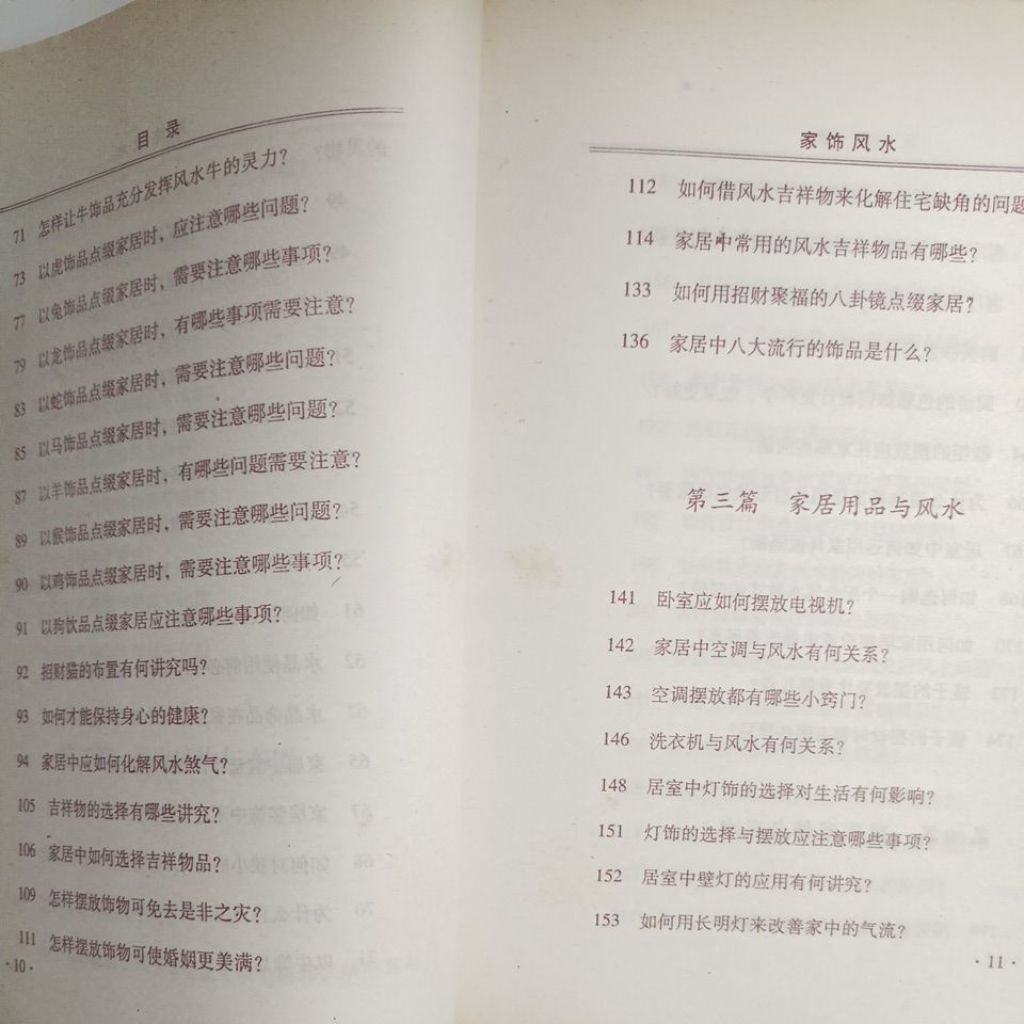 目 录
71 怎样让牛饰品充分发挥风水牛的灵力？
73 以虎饰品点缀家居时，应注意哪些问题？
77 以兔饰品点缀家居时，需要注意哪些事项？
79 以龙饰品点缀家居时，有哪些事项需要注意？
83 以蛇饰品点缀家居时，需要注意哪些问题？
85 以马饰品点缀家居时，需要注意哪些问题？
87 以羊饰品点缀家居时，有哪些问题需要注意？
89 以猴饰品点缀家居时，需要注意哪些问题？
90 以鸡饰品点缀家居时，需要注意哪些事项？
91 以狗饮品点缀家居应注意哪些事项？
92 招财猫的布置有何讲究吗？
93 如何才能保持身心的健康？
94 家居中应如何化解风水煞气？
105 吉祥物的选择有哪些讲究？
106 家居中如何选择吉祥物品？
109 怎样摆放饰物可免去是非之灾？
111 怎样摆放饰物可使婚姻更美满？
·10·
家饰风水
112 如何借风水吉祥物来化解住宅缺角的问题
114 家居中常用的风水吉祥物品有哪些？
133 如何用招财聚福的八卦镜点缀家居？
136 家居中八大流行的饰品是什么？
第三篇 家居用品与风水
141 卧室应如何摆放电视机？
142 家居中空调与风水有何关系？
143 空调摆放都有哪些小窍门？
146 洗衣机与风水有何关系？
148 居室中灯饰的选择对生活有何影响？
151 灯饰的选择与摆放应注意哪些事项？
152 居室中壁灯的应用有何讲究？
153 如何用长明灯来改善家中的气流？
·11·